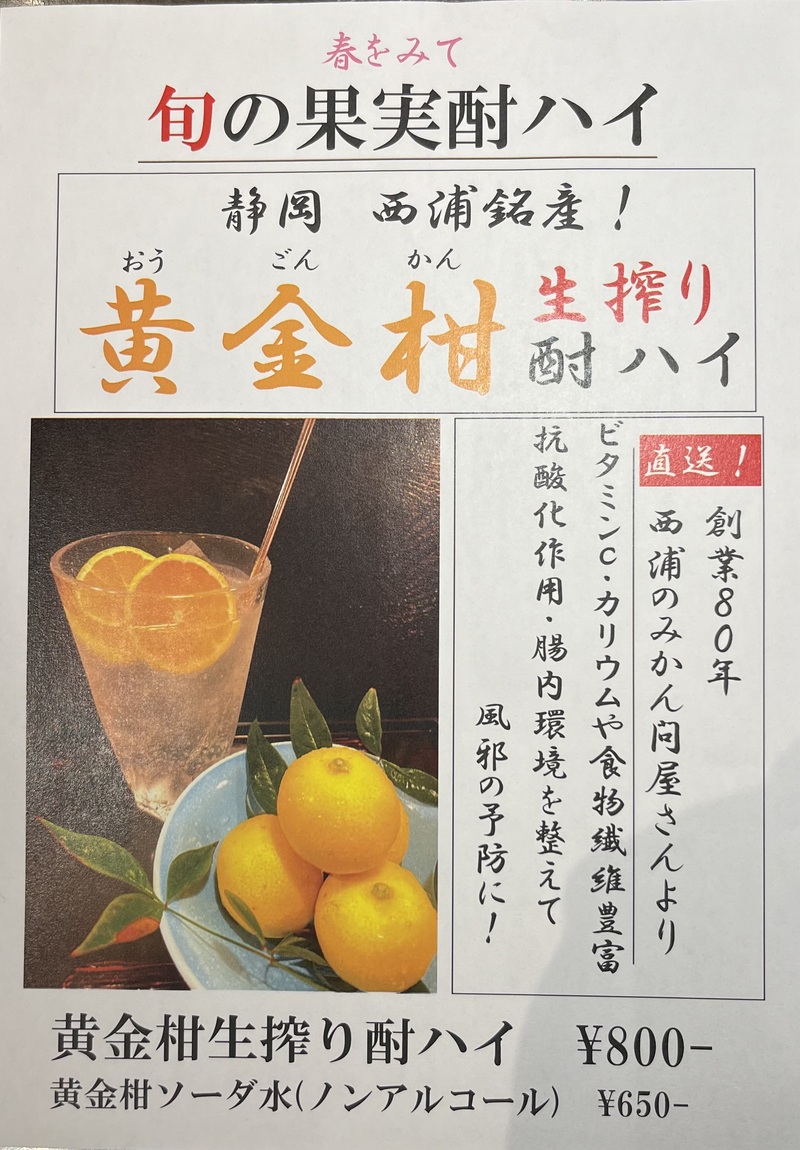 春をみて
旬の果実酎ハイ
静岡　西浦銘産！
おう　ごん　かん
黄金柑
生搾り
酎ハイ
直送！
創業80年
西浦のみかん問屋さんより
ビタミンC・カリウムや食物繊維豊富
抗酸化作用・腸内環境を整えて
風邪の予防に！
黄金柑生搾り酎ハイ　¥800-
黄金柑ソーダ水(ノンアルコール)　¥650-